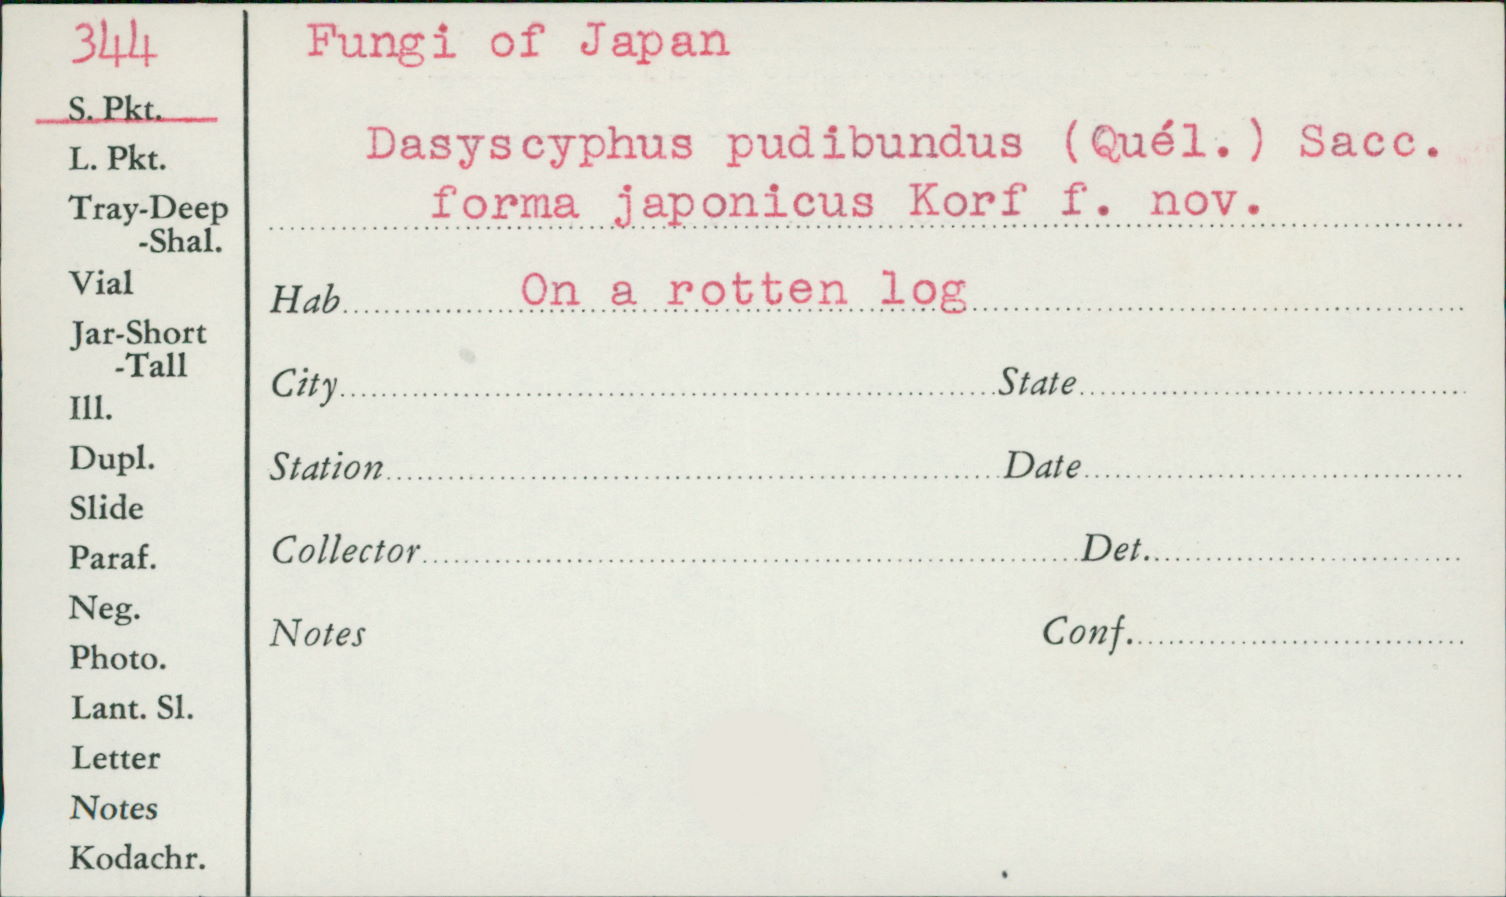 344
S. Pkt.
L. Pkt.
Tray-Deep
-Shal.
Vial
Jar-Short
-Tall
Ill.
Dupl.
Slide
Paraf.
Neg.
Photo.
Lant. Sl.
Letter
Notes
Kodachr.
Fungi of Japan
Dasyscyphus pudibundus (Quél.) Sacc.
forma japonicus Korf f. nov.
Hab On a rotten log
City State
Station Date
Collector Det.
Notes Conf.